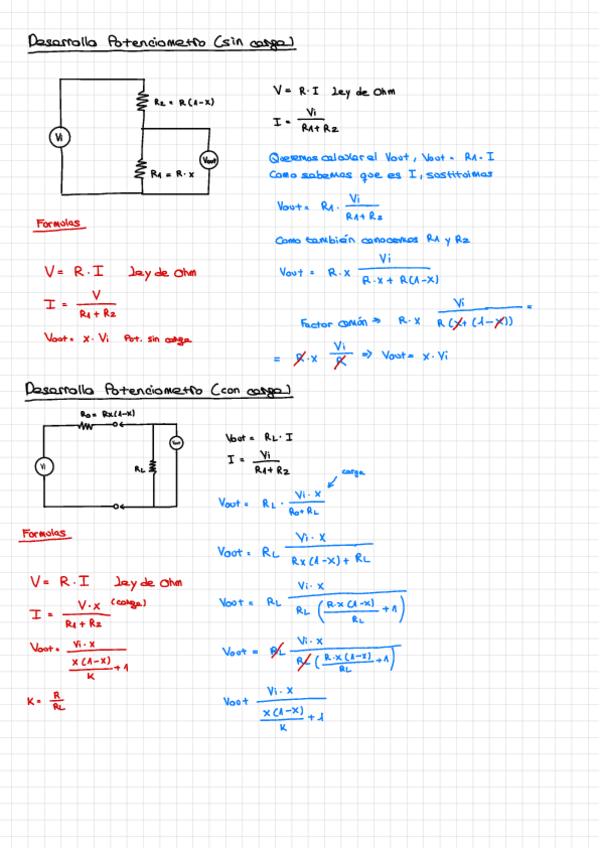 Desarrollo Potenciometro (sin carga)
R2 = R(1-x)
Vi
Vout
R1 = R·x
V = R·I ley de Ohm
I = Vi / (R1 + R2)
Queremos calcular el Vout, Vout = R1·I
Como sabemos que es I, sustituimos
Vout = R1 · Vi / (R1 + R2)
Como también conocemos R1 y R2
Vout = R·x Vi / (R·x + R(1-x))
Factor común => R·x Vi / (R(x + (1-x))) =
= R·x Vi / R => Vout = x·Vi
Formulas
V = R·I ley de Ohm
I = V / (R1 + R2)
Vout = x·Vi Pot. sin carga
Desarrollo Potenciometro (con carga)
Ro = Rx(1-x)
Vi
RL
Vout = RL·I
I = Vi / (R1 + R2)
carga
Vout = RL · Vi·x / (Ro + RL)
Vout = RL Vi·x / (Rx(1-x) + RL)
Vout = RL Vi·x / (RL (R·x(1-x) / RL + 1))
Vout = RL Vi·x / (RL (R·x(1-x) / RL + 1))
Vout Vi·x / (x(1-x) / K + 1)
Formulas
V = R·I ley de Ohm
I = V·x / (R1 + R2) (carga)
Vout = Vi·x / (x(1-x) / K + 1)
K = R / RL